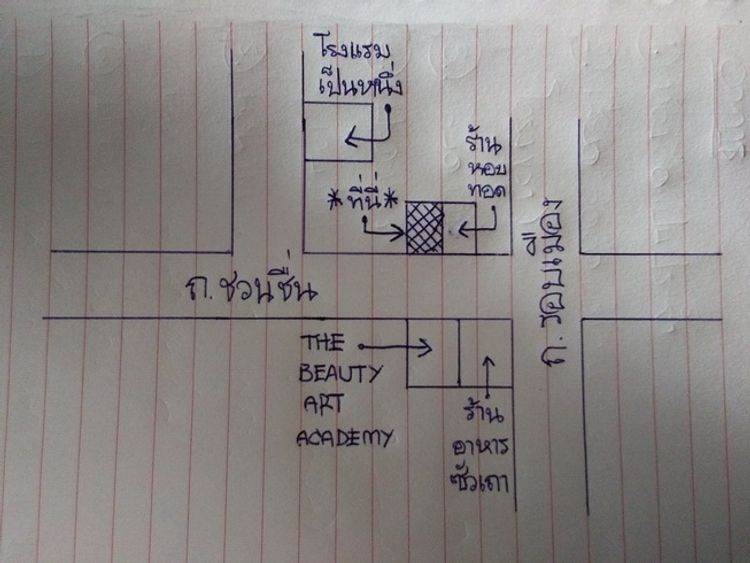 โรงแรม
เป็นหนึ่ง
ร้าน
หอย
ทอด
*ที่นี่*
ถ.ชวนชื่น
ถ.รอบเมือง
THE
BEAUTY
ART
ACADEMY
ร้าน
อาหาร
ซัวเถา